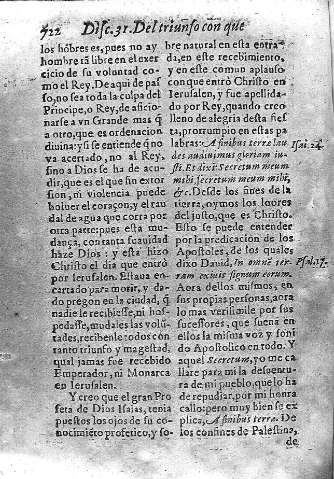 722 Disc. 31. Del triunfo con que
los hõbres es, pues no ay
hombre tã libre en el exer
cicio de su voluntad co-
mo el Rey. De aqui de pas
so, no sea toda la culpa del
Principe, o Rey, de aficio-
narse a vn Grande mas q̃
a otro, que es ordenacion
diuina: y si se entiẽde q̃ no
va acertado, no al Rey,
sino a Dios se ha de acu-
dir, que es el que sin extor
sion, ni violencia puede
boluer el coraçon, y el rau
dal de agua que corra por
otra parte: pues esta mu-
dança, con tanta suauidad
haze Dios: y esta hizo
Christo el dia que entrò
por Ierusalen. Estaua en-
cartado para morir, y da-
do pregon en la ciudad, q̃
nadie le recibiesse, ni hos-
pedasse, mudales las volũ-
tades, recibenle todos con
tanto triunfo y magestad
qual jamas fue recebido
Emperador, ni Monarca
en Ierusalen.
Y creo que el gran Pro
feta de Dios Isaias, tenia
puestos los ojos de su co-
nocimiẽto profetico, y so-
bre natural en esta entra-
da, en este recebimiento,
y en este comun aplauso
con que entrò Christo en
Ierusalen, y fue apellida-
do por Rey, quando creo
lleno de alegria desta fies
ta, prorrumpio en estas pa
labras: A finibus terra lau
des audiuimus gloriam iu-
sti. Et dixi: Secretum meum
mihi secretum meum mihi,
&c. Desde los fines de la
tierra, oymos los loores
del justo, que es Christo.
Esto se puede entender
por la predicacion de los
Apostoles, de los quales
dixo Dauid, In omnẽ ter-
ram exiuit sonum eorum.
Aora dellos mismos, en
sus propias personas, aora
lo mas verisimile por sus
sucessores, que suena en
ellos la misma voz y soni
do Apostolico en todo. Y
aquel Secretum, yo me ca
llare para mi la desuentu-
ra de mi pueblo, que lo ha
de repudiar, por mi honra
callo: pero muy bien se ex
plica, A finibus terra. De
los confines de Palestina,
de
Isai. 24.
Psal. 17.